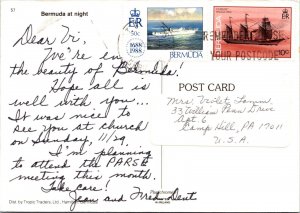 57 Bermuda at night
Dear Vi,
We're in
the beauty of Bermuda!
Hope all is
well with you...
It was nice to
see you at church
on Sunday, 11/29.
I'm planning
to attend the PARSE
meeting this month.
Take care!
Jean and Fred Dent
Dist. by Tropic Traders, Ltd., Hamilton
50c
1688
1988
BERMUDA
BERMUDA
10c
YOUR POSTCODE
POST CARD
Mrs. Violet
33 William Penn Drive
Apt. 6
Camp Hill, PA 17011
U.S.A.